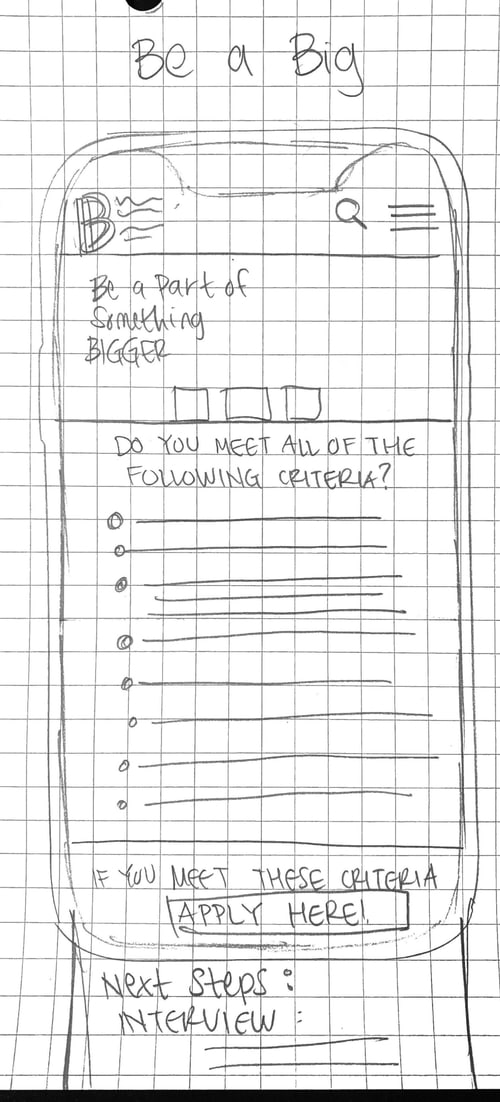 Be a Big
B
Be a Part of
Something
BIGGER
DO YOU MEET ALL OF THE
FOLLOWING CRITERIA?
IF YOU MEET THESE CRITERIA
APPLY HERE!
Next Steps:
INTERVIEW: